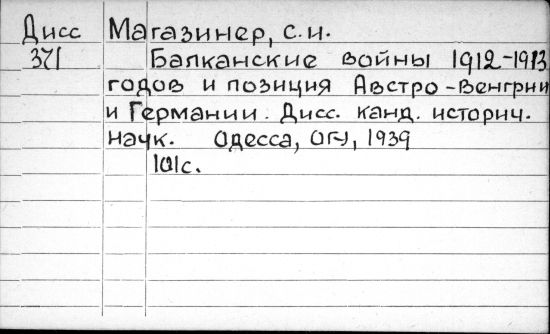 Дисс Магазинер, С.И.
371 Балканские войны 1912-1913
годов и позиция Австро-Венгрии
и Германии. Дисс. канд. историч.
наук. Одесса, ОГУ, 1939
101с.